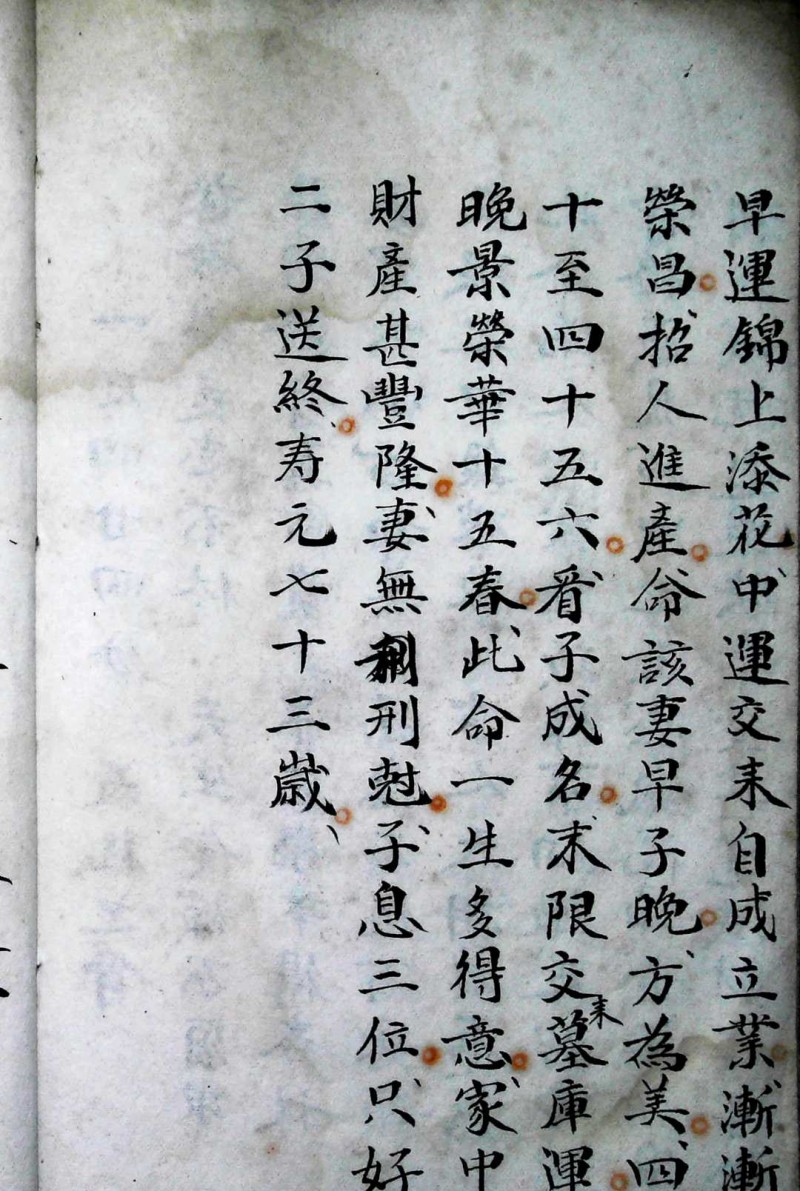 早運錦上添花中運交来自成立業漸漸
榮昌招人進產命該妻早子晚方為美四
十至四十五六看子成名末限交来墓庫運
晚景榮華十五春此命一生多得意家中
財產甚豐隆妻無刑尅子息三位只好
二子送終寿元七十三歲